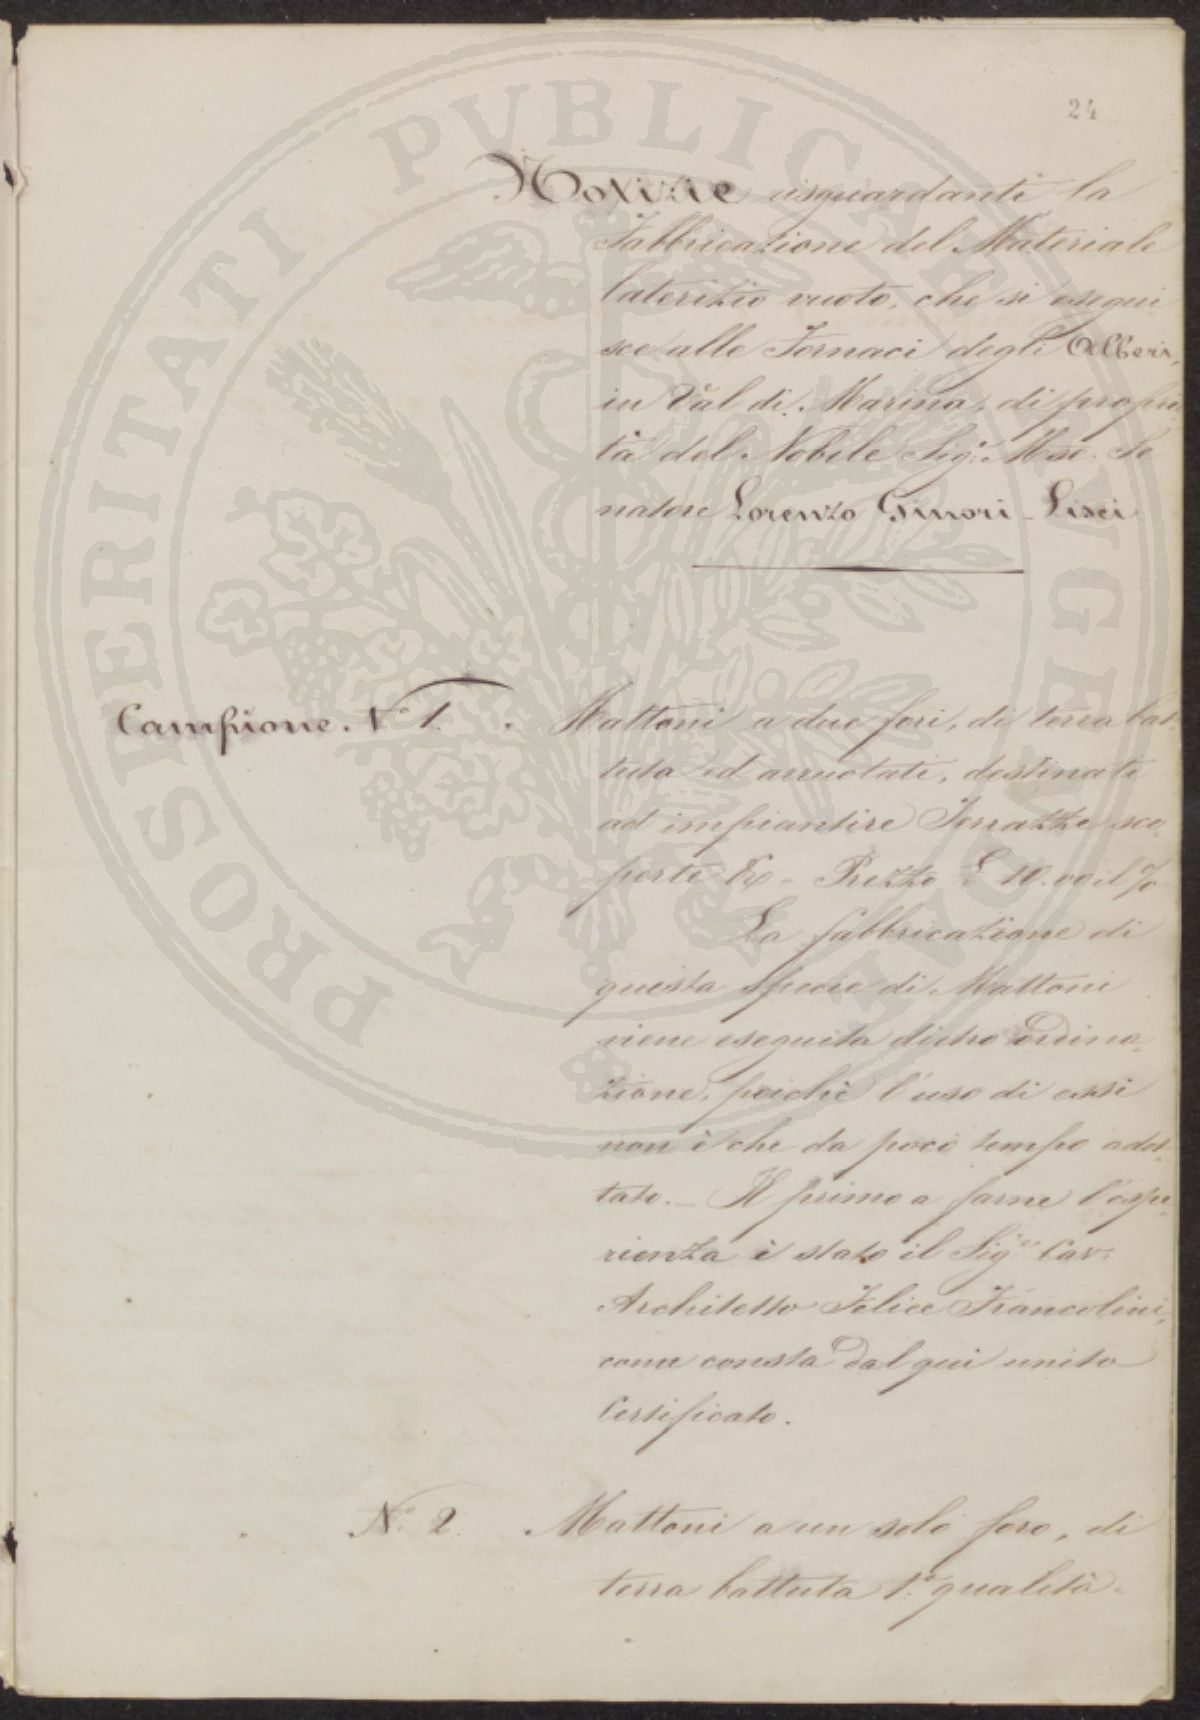 24
Notizie risguardanti la
Fabbricazione del Materiale
laterizio vuoto, che si esegui
sce alle Fornaci degli Alberi,
in Val di Marina, di proprie
tà del Nobile Sig.r Mse. Se
natore Lorenzo Ginori-Lisci
Campione. N.o 1. Mattoni a due fori, di terra bat-
tuta ed arruotati, destinati
ad impiantire Terrazze sco-
perte &c - Prezzo £ 10.00 il %
La fabbricazione di
questa specie di Mattoni
viene eseguita dietro ordina-
zione, poichè l'uso di essi
non è che da poco tempo adot-
tato. - Il primo a farne l'espe-
rienza è stato il Sig.r Cav.
Architetto Felice Francolini,
come consta dal qui unito
Certificato.
N.o 2. Mattoni a un solo foro, di
terra battuta 1.a qualità.
PROSPERITATI PVBLICAE AVGENDAE